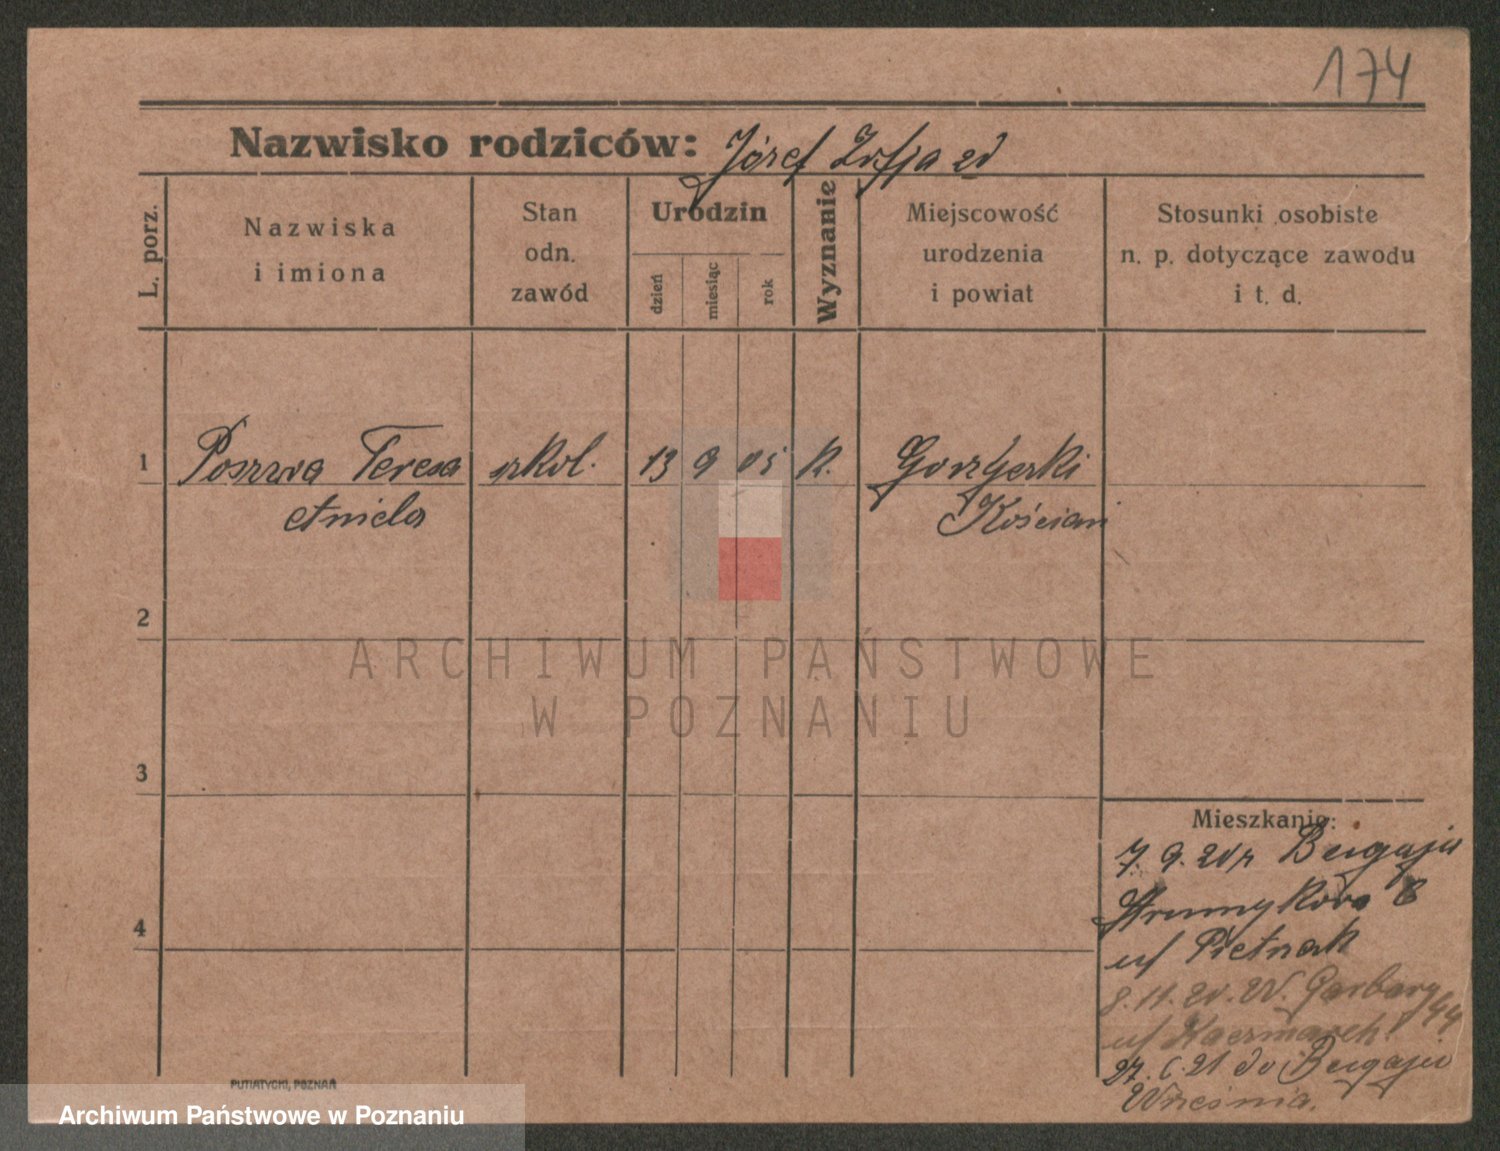 174
Nazwisko rodziców: Józef Zofja
L. porz.
Nazwiska
i imiona
Stan
odn.
zawód
Urodzin
dzień
miesiąc
rok
Wyznanie
Miejscowość
urodzenia
i powiat
Stosunki osobiste
n. p. dotyczące zawodu
i t. d.
1 Poszwa Teresa szkol. 13 9 05 K.
Aniela Kościan
2
3
4
ARCHIWUM PAŃSTWOWE
W POZNANIU
Mieszkanie:
7. 9. 20 r
Strumykowa 8
u/ Pietrzak
8. 11. 20. W. Garbary 44
u/ Kaczmarek
27. 6. 21 do
Września.
PUTIATYCKI, POZNAŃ
Archiwum Państwowe w Poznaniu